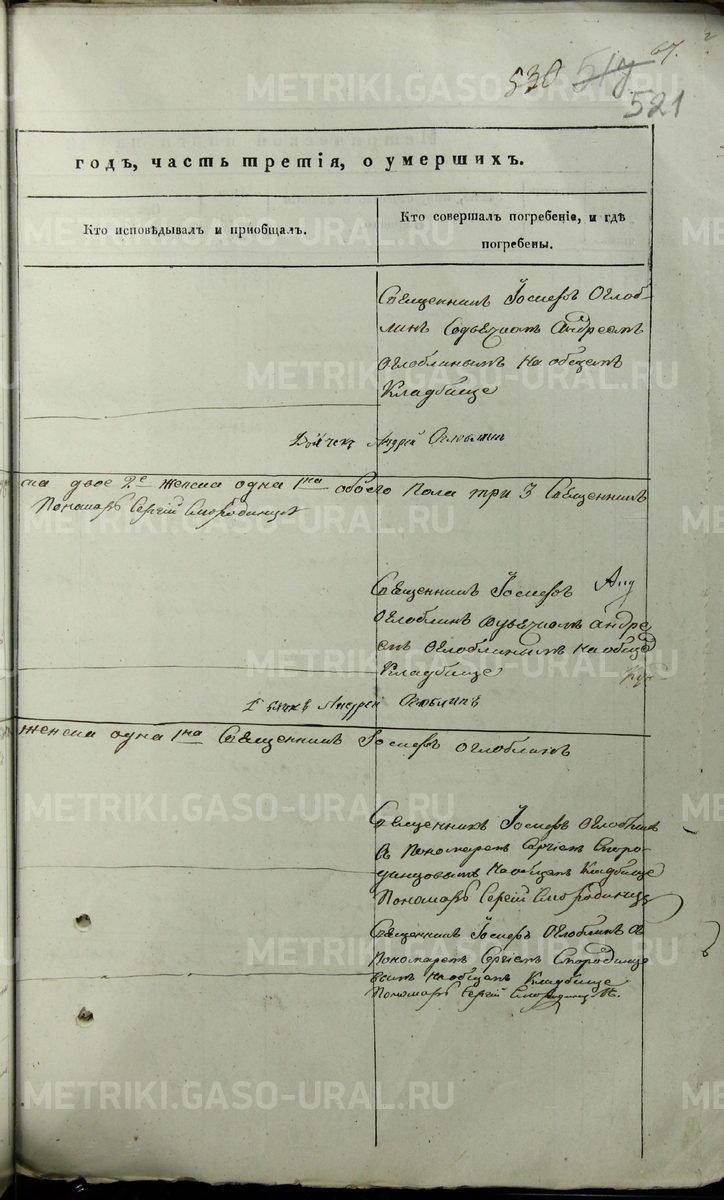 67.
530 517
521
годъ, часть третія, о умершихъ.
Кто исповѣдывалъ и приобщалъ.
Кто совершалъ погребеніе, и гдѣ
погребены.
Священникъ Іосифъ Оглоб-
линъ Содьячкомъ Андреемъ
Оглоблинымъ на общемъ
Кладбище
Дьячекъ Андрей Оглоблинъ
двое 2е женска одна 1на обоего пола три 3 Священникъ
Пономарь Сергій Смородинцовъ
Священникъ Іосифъ
Оглоблинъ содьячкомъ андре
емъ Оглоблинымъ на общемъ
Кладбище
Дьячекъ Андрей Оглоблинъ
женска одна 1на Священникъ Іосифъ Оглоблинъ
Священникъ Іосифъ Оглоблинъ
съ Пономаремъ Сергіемъ Сморо-
динцовымъ на общемъ Кладбище
Пономарь Сергій Смородинцовъ
Священникъ Іосифъ Оглоблинъ съ
Пономаремъ Сергіемъ Смородинцо
вымъ на общемъ Кладбище
Пономарь Сергій Смородинцовъ.
METRIKI.GASO-URAL.RU